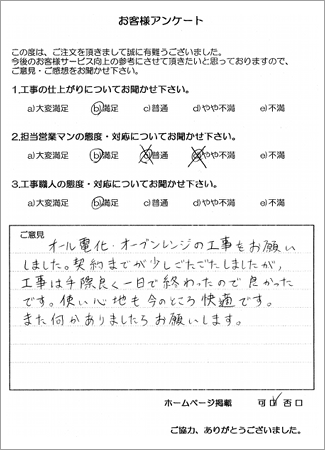 お客様アンケート
この度は、ご注文を頂きまして誠に有難うございました。
今後のお客様サービス向上の参考にさせて頂きたいと思っておりますので、
ご意見・ご感想をお聞かせ下さい。
1.工事の仕上がりについてお聞かせ下さい。
a)大変満足 b)満足 c)普通 d)やや不満 e)不満
2.担当営業マンの態度・対応についてお聞かせ下さい。
a)大変満足 b)満足 c)普通 d)やや不満 e)不満
3.工事職人の態度・対応についてお聞かせ下さい。
a)大変満足 b)満足 c)普通 d)やや不満 e)不満
ご意見
オール電化・オーブンレンジの工事をお願い
しました。契約までが少しごたごたしましたが、
工事は手際良く一日で終わったので良かった
です。使い心地も今のところ快適です。
また何かありましたらお願いします。
ホームページ掲載 可 否
ご協力、ありがとうございました。